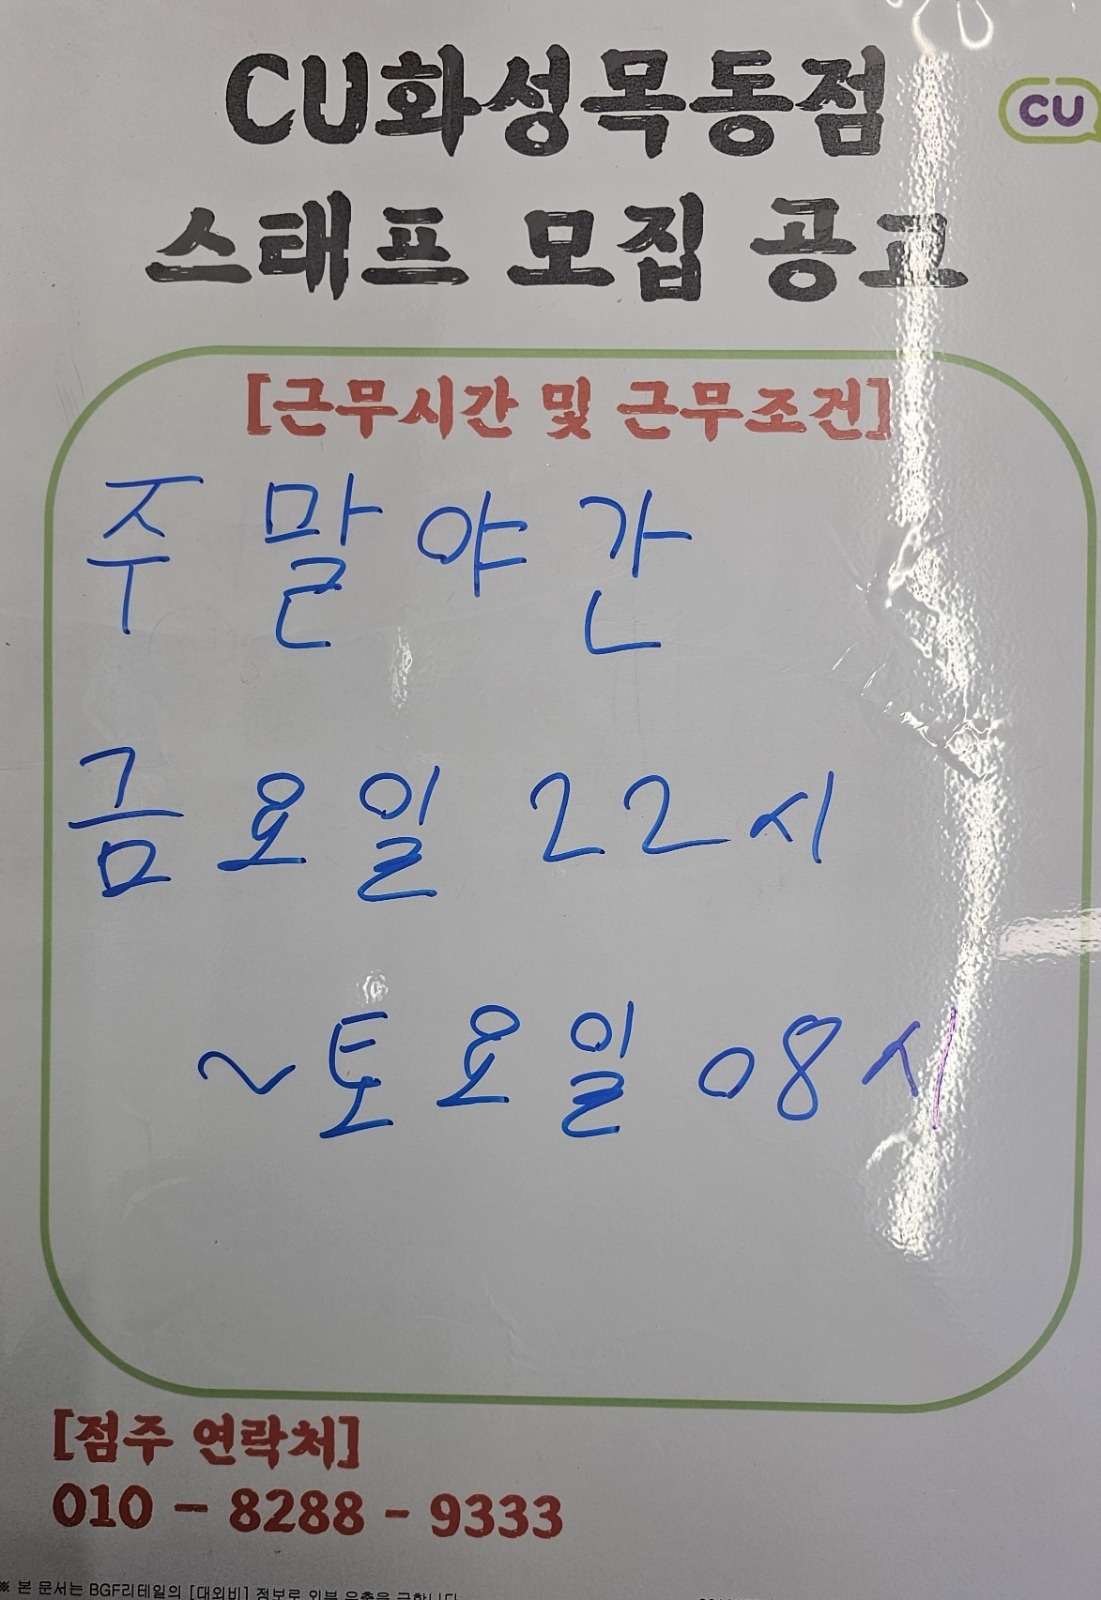 CU화성목동점
CU
스태프 모집 공고
[근무시간 및 근무조건]
주말야간
금요일 22시
~토요일 08시
[점주 연락처]
010 - 8288 - 9333
※ 본 문서는 BGF리테일의 [대외비] 정보로 외부 유출을 금합니다